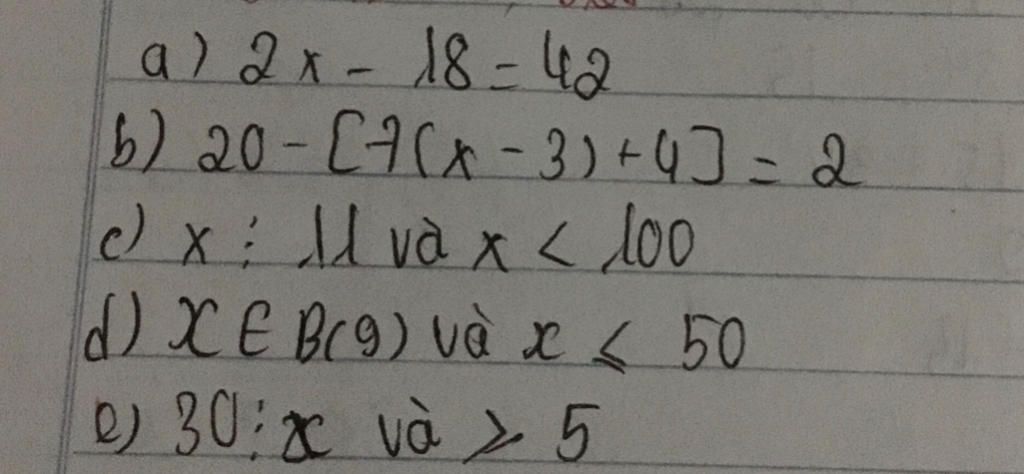 a) 2x - 18 = 42
b) 20 - [7(x - 3) + 4] = 2
c) x ⋮ 11 và x < 100
d) x ∈ B(9) và x ≤ 50
e) 30 ⋮ x và ≥ 5